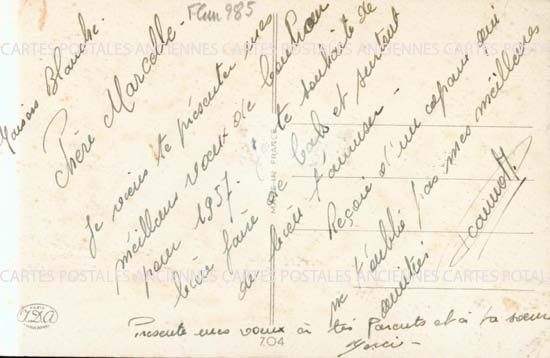 Flm 985
Maisons Blanche.
Chère Marcelle.
Je viens te présenter mes
meilleurs vœux de bonheur
pour 1957. te souhaite de
bien faire de bals et surtout
de bien t'amuser.
Reçois d'un copain qui
ne t'oublie pas mes meilleures
amitiés
Présente mes vœux à tes parents et à ta sœur
Merci-
MADE IN FRANCE
PARIS
704
CARTES POSTALES ANCIENNES CARTES POSTALES ANCIENNES
CARTES POSTALES ANCIENNES CARTES POSTALES